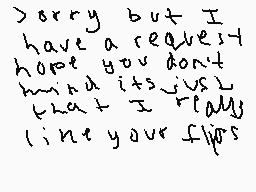 Sorry but I
have a request
hope you don't
mind its just
that I really
like your flips